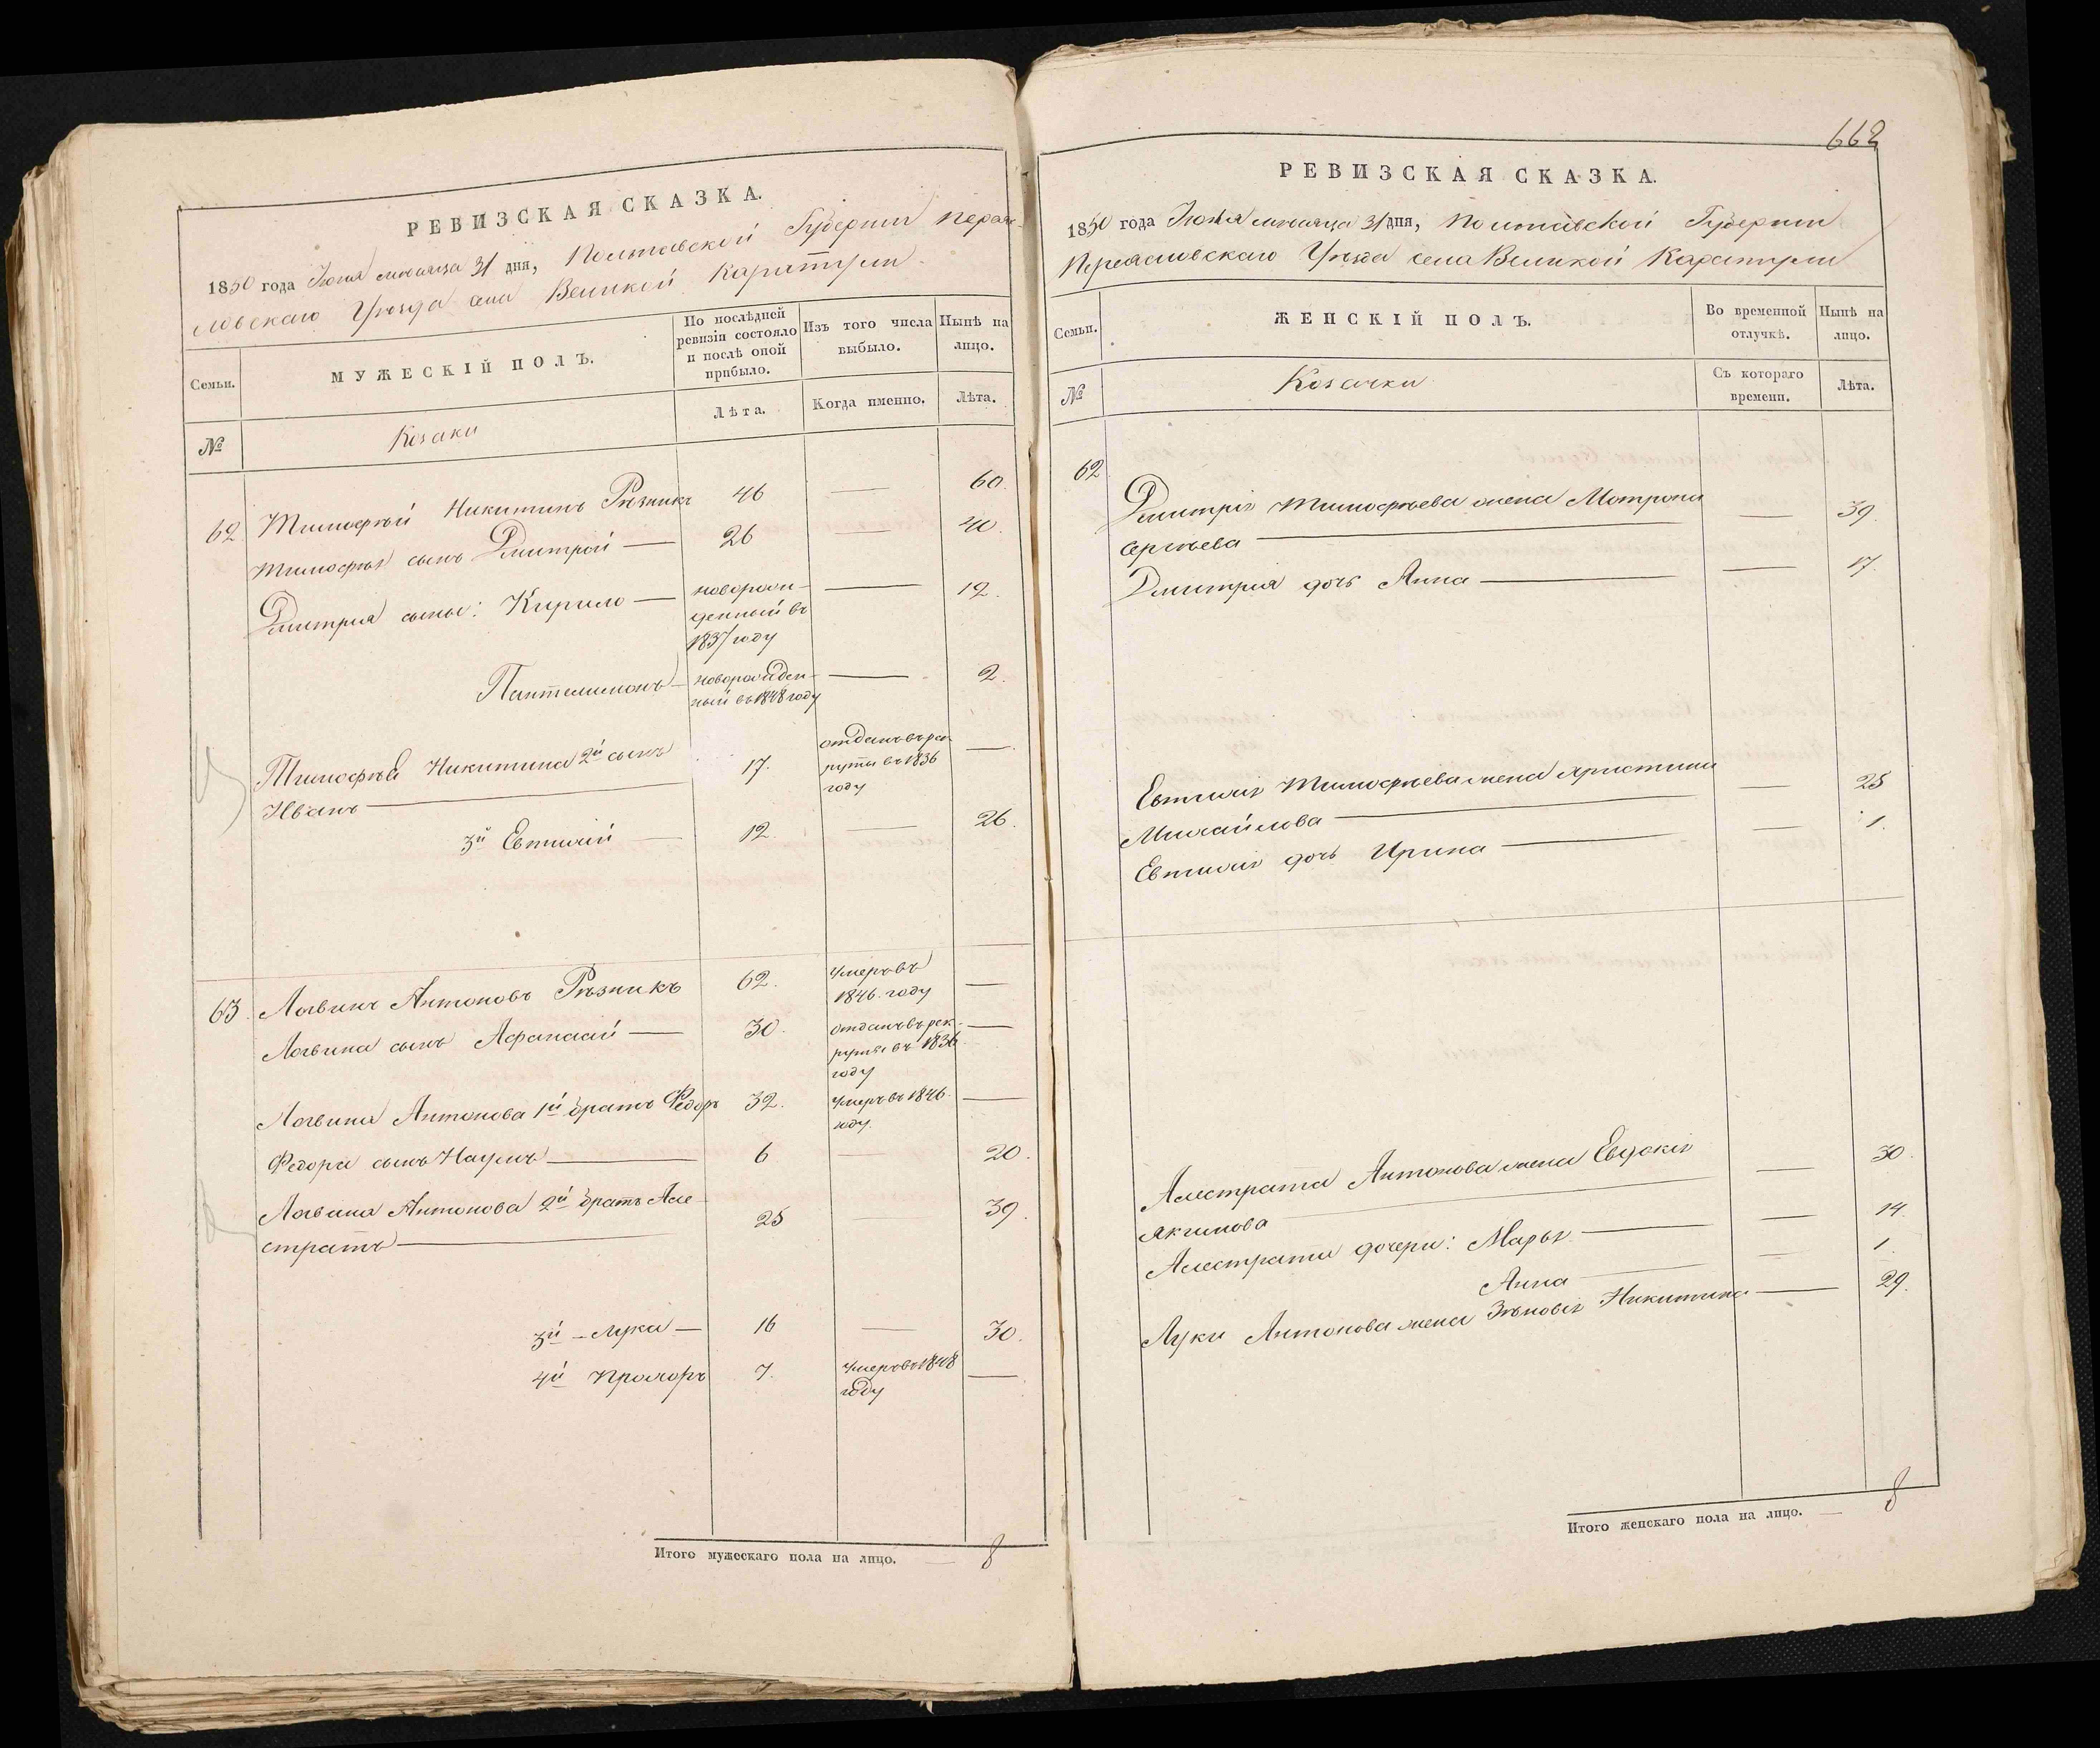 РЕВИЗСКАЯ СКАЗКА.
1850 года Июля мѣсяца 31 дня, Полтавской Губерніи Переяс-
ловскаго Уѣзда села Великой Каратули
Семьи. МУЖЕСКІЙ ПОЛЪ. По послѣдней ревизіи состояло и послѣ оной прибыло. Изъ того числа выбыло. Нынѣ на лицо.
№ Козаки Лѣта. Когда именно. Лѣта.
62 Тимофѣй Никитинъ Рѣзникъ 46 — 60.
Тимофѣя сынъ Дмитрой — 26 — 40.
Дмитрія сыны: Кирило — новорож- — 12.
денный въ
1837 году
Пантелимонъ — новорожден- — 2.
ный въ 1848 году
Тимофѣя Никитина 2й сынъ 17. отданъ въ рек- —
Иванъ — руты въ 1836
году
3й Евтихій — 12. — 26.
63. Логвинъ Антоновъ Рѣзникъ 62. умеръ въ —
1846. году
Логвина сынъ Афанасій — 30. отданъ въ рек- —
руты въ 1836
году
Логвина Антонова 1й братъ Федоръ 32. умеръ въ 1846. —
году.
Федора сынъ Наумъ — 6 — 20.
Логвина Антонова 2й братъ Але- 25 — 39.
стратъ —
3й — Лука — 16 — 30.
4й Прохоръ 7. умеръ въ 1848 —
году
Итого мужескаго пола на лицо. — 8
662
РЕВИЗСКАЯ СКАЗКА.
1850 года Июля мѣсяца 31 дня, Полтавской Губерніи
Переясловскаго Уѣзда села Великой Каратули
Семьи. ЖЕНСКІЙ ПОЛЪ. Во временной отлучкѣ. Нынѣ на лицо.
№ Козачки Съ котораго времени. Лѣта.
62 Дмитрія Тимофѣева жена Мотрона
Сергѣева — — 39.
Дмитрія дочь Анна — — 17.
Евтихія Тимофѣева жена Христина — 25
Михайлова —
Евтихія дочь Ирина — — 1.
Алестрата Антонова жена Евдокія — 30.
Якимова
Алестрата дочери: Марья — — 14.
Анна — — 1.
Луки Антонова жена Зѣновія Никитина — 29.
Итого женскаго пола на лицо. — 8